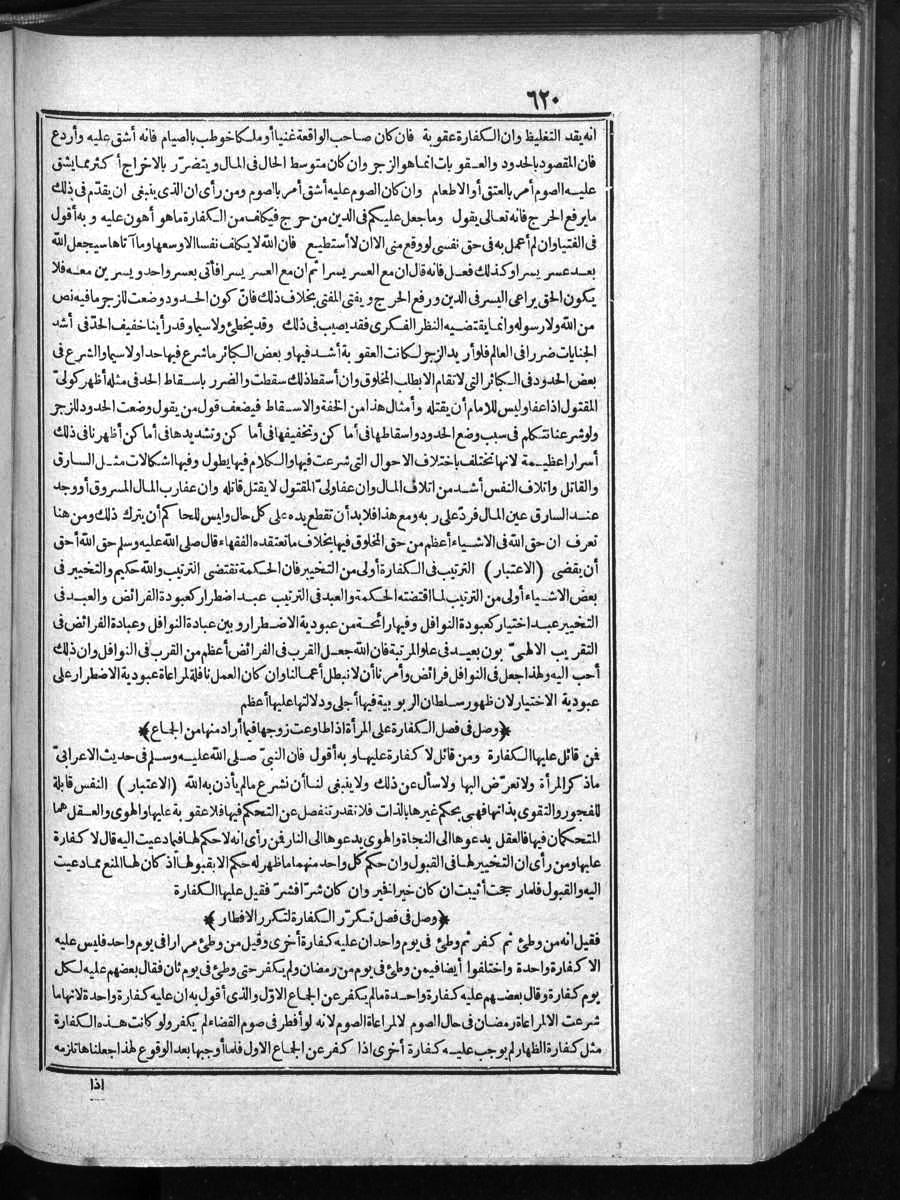 ٦٢٠
انه يقد التغليظ وان الكفارة عقوبة فان كان صاحب الواقعة غنيا أو ملكا خوطب بالصيام فانه أشق عليه وأردع
فان المقصود بالحدود والعقوبات انما هو الزجر وان كان متوسط الحال فى المال ويتضرّر بالاخراج أكثر مما يشق
عليه الصوم أمر بالعتق أو الاطعام وان كان الصوم عليه أشق أمر بالصوم ومن رأى ان الذى ينبغى ان يقدّم فى ذلك
ما يرفع الحرج فانه تعالى يقول وما جعل عليكم فى الدين من حرج فيكلف من الكفارة ما هو أهون عليه وبه أقول
فى الفتيا وان لم أعمل به فى حق نفسى لو وقع منى الا ان لا أستطيع فان الله لا يكلف نفسا الا وسعها وما آتاها سيجعل الله
بعد عسر يسرا وكذلك فعل فانه قال ان مع العسر يسرا ثم ان مع العسر يسرا فأتى بعسر واحد ويسرين معه فلا
يكون الحق يراعى اليسر فى الدين ورفع الحرج ويفتى المفتى بخلاف ذلك فانّ كون الحدود وضعت للزجر ما فيه نص
من الله ولا رسوله وانما يقتضيه النظر الفكرى فقد يصيب فى ذلك وقد يخطئ ولا سيما وقد رأينا خفيف الحدّ فى أشد
الجنايات ضررا فى العالم فلو أريد الزجر لكانت العقوبة أشد فيها وبعض الكبائر ما شرع فيها حد اولا سيما والشرع فى
بعض الحدود فى الكبائر التى لا تقام الا بطلب المخلوق وان أسقط ذلك سقطت والضرر باسقاط الحد فى مثله أظهر كولىّ
المقتول اذا عفا وليس للامام أن يقتله وأمثال هذا من الخفة والاسقاط فيضعف قول من يقول وضعت الحدود للزجر
ولو شرعنا نتكلم فى سبب وضع الحدود واسقاطها فى أماكن وتخفيفها فى أماكن وتشديدها فى أماكن أظهرنا فى ذلك
أسرارا عظيمة لانها تختلف باختلاف الاحوال التى شرعت فيها والكلام فيها يطول وفيها اشكالات مثل السارق
والقاتل واتلاف النفس أشد من اتلاف المال وان عفا ولىّ المقتول لا يقتل قاتله وان عفا رب المال المسروق أو وجد
عند السارق عين المال فردّ على ربه ومع هذا فلا بد أن تقطع يده على كل حال وليس للحاكم أن يترك ذلك ومن هنا
تعرف ان حق الله فى الاشياء أعظم من حق المخلوق فيها بخلاف ما تعتقده الفقهاء قال صلى الله عليه وسلم حق الله أحق
أن يقضى (الاعتبار) الترتيب فى الكفارة أولى من التخيير فان الحكمة تقتضى الترتيب والله حكيم والتخيير فى
بعض الاشياء أولى من الترتيب لما اقتضته الحكمة والعبد فى الترتيب عبد اضطرار كعبودة الفرائض والعبد فى
التخيير عبد اختيار كعبودة النوافل وفيها رائحة من عبودية الاضطرار وبين عبادة النوافل وعبادة الفرائض فى
التقريب الالهىّ بون بعيد فى علو المرتبة فان الله جعل القرب فى الفرائض أعظم من القرب فى النوافل وان ذلك
أحب اليه ولهذا جعل فى النوافل فرائض وأمرنا أن لا نبطل أعمالنا وان كان العمل نافلة لمراعاة عبودية الاضطرار على
عبودية الاختيار لان ظهور سلطان الربوبية فيها أجلى ودلالتها عليها أعظم
﴿وصل فى فصل الكفارة على المرأة اذا طاوعت زوجها فيما أراد منها من الجماع﴾
فمن قائل عليها الكفارة ومن قائل لا كفارة عليها وبه أقول فان النبىّ صلى الله عليه وسلم فى حديث الاعرابىّ
ما ذكر المرأة ولا تعرّض اليها ولا سأل عن ذلك ولا ينبغى لنا أن نشرع ما لم يأذن به الله (الاعتبار) النفس قابلة
للفجور والتقوى بذاتها فهى بحكم غيرها بالذات فلا تقدر تنفصل عن التحكم فيها فلا عقوبة عليها والهوى والعقل هما
المتحكمان فيها فالعقل يدعوها الى النجاة والهوى يدعوها الى النار فمن رأى انه لا حكم لها فيما دعيت اليه قال لا كفارة
عليها ومن رأى ان التخيير لها فى القبول وان حكم كل واحد منهما ما ظهر له حكم الا بقبولها اذ كان لها المنع مما دعيت
اليه والقبول فلما رجحت أثيبت ان كان خيرا فخير وان كان شرّا فشرّ فقيل عليها الكفارة
﴿وصل فى فصل تكرّر الكفارة لتكرر الافطار﴾
فقيل انه من وطئ ثم كفر ثم وطئ فى يوم واحد ان عليه كفارة أخرى وقيل من وطئ مرارا فى يوم واحد فليس عليه
الا كفارة واحدة واختلفوا أيضا فيمن وطئ فى يوم من رمضان ولم يكفر حتى وطئ فى يوم ثان فقال بعضهم عليه لكل
يوم كفارة وقال بعضهم عليه كفارة واحدة ما لم يكفر عن الجماع الاوّل والذى أقول به ان عليه كفارة واحدة لانها ما
شرعت الا لمراعاة رمضان فى حال الصوم لا لمراعاة الصوم لانه لو أفطر فى صوم القضاء لم يكفر ولو كانت هذه الكفارة
مثل كفارة الظهار لم يوجب عليه كفارة أخرى اذا كفر عن الجماع الاول فلما أوجبها بعد الوقوع لهذا جعلناها تلزمه
اذا